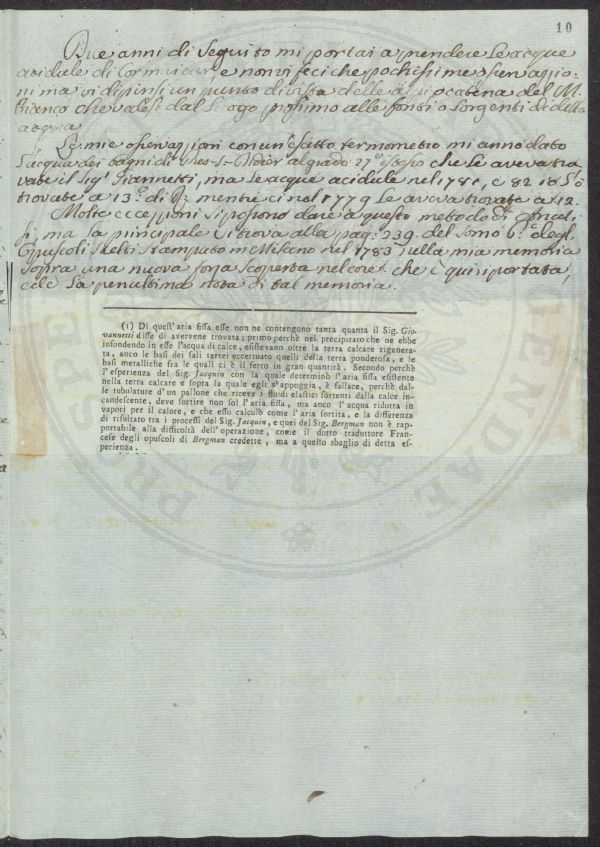 10
Due anni di seguito mi portai a prendere le acque
acidule di Cormaieur e non vi feci che pochissime osservazio-
ni ma vi dipinsi un punto di vista delle
Bianco che vedesi dal luogo prossimo alle fonti o sorgenti di detta
acqua
Le mie osservazioni con un esatto termometro mi anno dato
l'acqua dei bagni di al grado 27° che le aveva tro-
vate il Sig.r Gianetti, ma le acque acidule nel 1781, e 82 le ò
trovate a 13°. di mentre ei nel 1779 le aveva trovate a 12.
Molte eccezzioni si possono dare a questo metodo di
ma la principale si trova alla pag: 239 del tomo 6.° degl
Opuscoli Scelti stampato in Milano nel 1783 nella mia memoria
sopra una nuova scoperta che è qui riportata,
ed è la penultima nota di tal memoria.
(1) Di quest' aria fissa esse non ne contengono tanta quanta il Sig. Gio-
vannetti disse di avervene trovata; primo perchè nel precipitato che ne ebbe
infondendo in esse l'acqua di calce, esistevano oltre la terra calcare rigenera-
ta, anco le basi dei sali terrei eccettuato quelli della terra ponderosa, e le
basi metalliche fra le quali ci è il ferro in gran quantità. Secondo perchè
l'esperienza del Sig. Jacquin con la quale determinò l'aria fissa esistente
nella terra calcare e sopra la quale egli s'appoggia, è fallace, perchè dal-
le tubulature d'un pallone che riceve i fluidi elastici sortenti dalla calce in-
candescente, deve sortire non sol l'aria fissa, ma anco l'acqua ridotta in
vapori per il calore, e che esso calcolò come l'aria sortita, e la differenza
di risultato tra i processi del Sig. Jacquin, e quei del Sig. Bergman non è rap-
portabile alla difficoltà dell'operazione, come il dotto traduttore Fran-
cese degli opuscoli di Bergman credette, ma a quello sbaglio di detta es-
perienza.